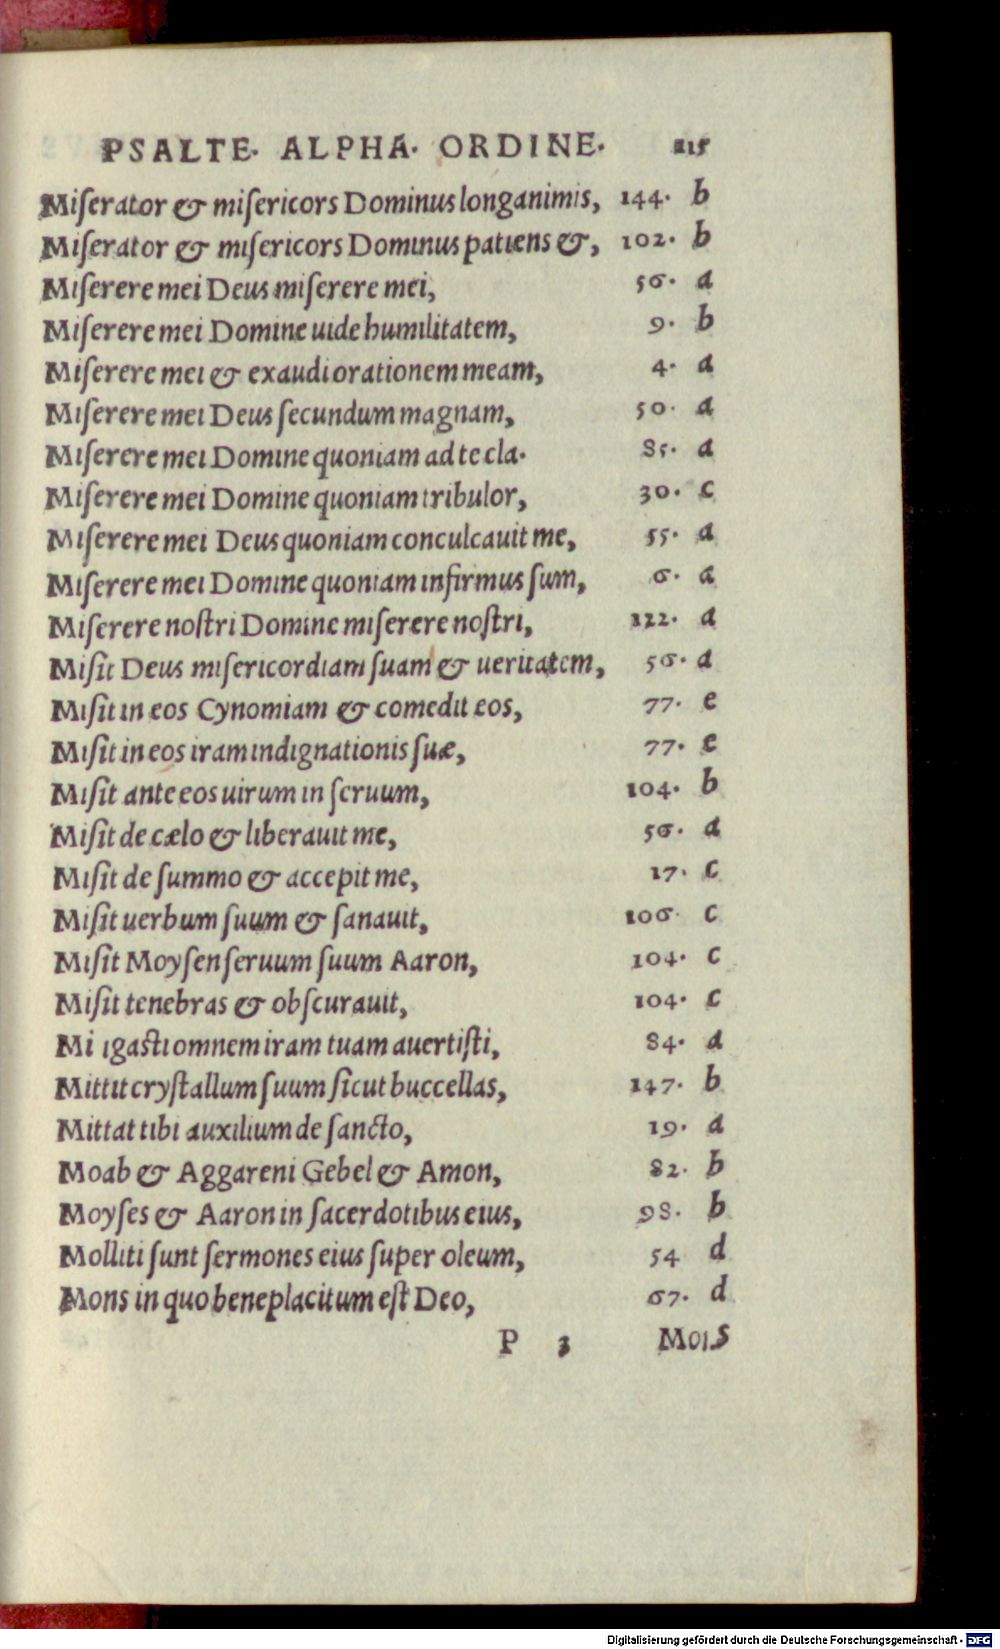 PSALTE· ALPHA· ORDINE· 115
Miſerator & miſericors Dominus longanimis, 144· b
Miſerator & miſericors Dominus patiens &, 102· b
Miſerere mei Deus miſerere mei, 56· a
Miſerere mei Domine uide humilitatem, 9· b
Miſerere mei & exaudi orationem meam, 4· a
Miſerere mei Deus ſecundum magnam, 50· a
Miſerere mei Domine quoniam ad te cla· 85· a
Miſerere mei Domine quoniam tribulor, 30· c
Miſerere mei Deus quoniam conculcauit me, 55· a
Miſerere mei Domine quoniam infirmus ſum, 6· a
Miſerere noſtri Domine miſerere noſtri, 122· a
Miſit Deus miſericordiam ſuam & ueritatem, 56· a
Miſit in eos Cynomiam & comedit eos, 77· e
Miſit in eos iram indignationis ſuæ, 77· e
Miſit ante eos uirum in ſeruum, 104· b
Miſit de cælo & liberauit me, 56· a
Miſit de ſummo & accepit me, 17· c
Miſit uerbum ſuum & ſanauit, 106· c
Miſit Moyſen ſeruum ſuum Aaron, 104· c
Miſit tenebras & obſcurauit, 104· c
Mi igaſti omnem iram tuam auertiſti, 84· a
Mittit cryſtallum ſuum ſicut buccellas, 147· b
Mittat tibi auxilium de ſancto, 19· a
Moab & Aggareni Gebel & Amon, 82· b
Moyſes & Aaron in ſacerdotibus eius, 98· b
Molliti ſunt ſermones eius ſuper oleum, 54 d
Mons in quo beneplacitum eſt Deo, 67· d
P 3 Mois
Digitalisierung gefördert durch die Deutsche Forschungsgemeinschaft - DFG